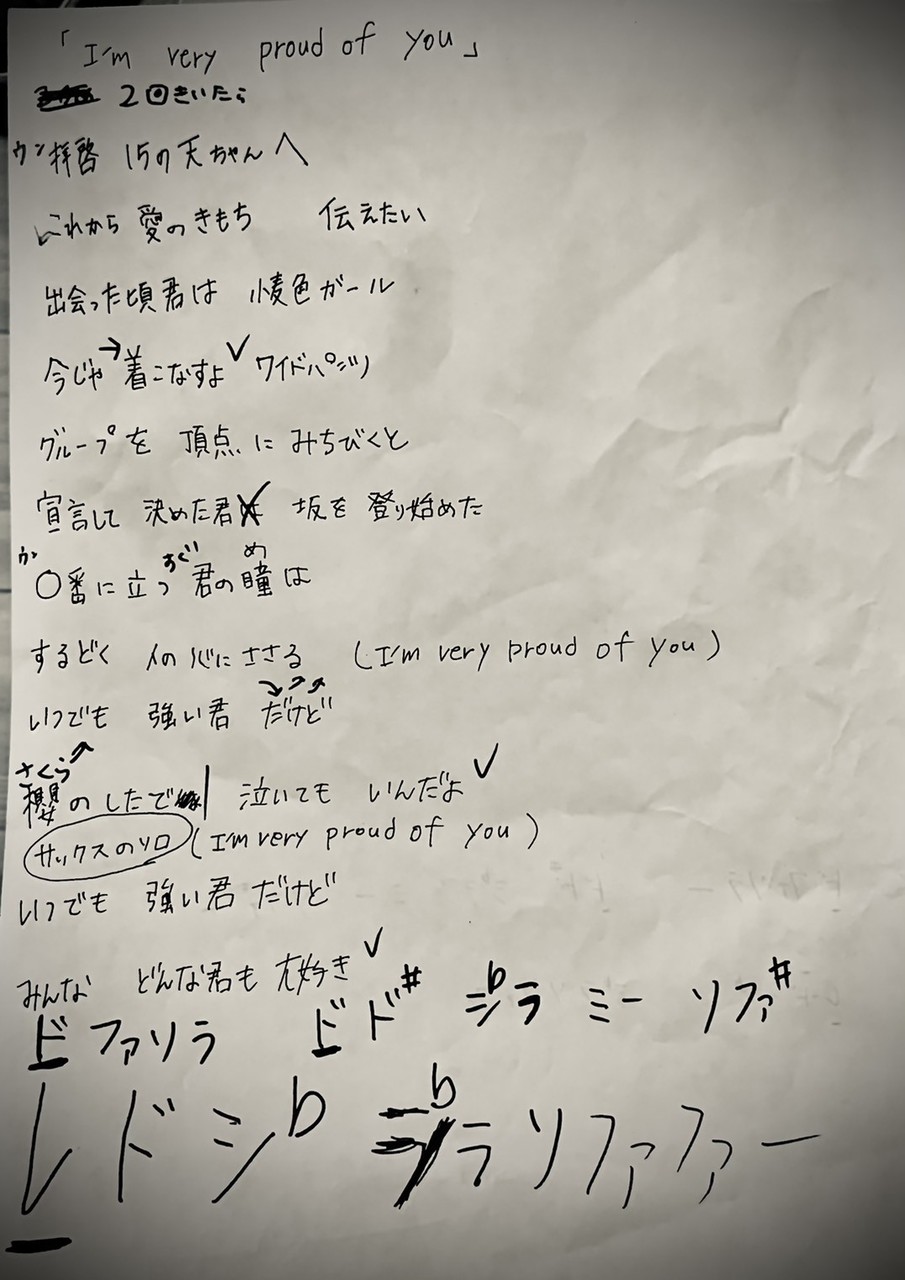 「I'm very proud of you」
2回きいたら
ウン拝啓 15の天ちゃんへ
これから 愛のきもち 伝えたい
出会った頃君は 小麦色ガール
今じゃ→着こなすよ✓ ワイドパンツ
グループを 頂点に みちびくと
宣言して 決めた君 坂を 登り始めた
ウン すぐ め
〇番に立つ 君の瞳は
するどく 人の心に ささる (I'm very proud of you)
いつでも 強い君 だけど
さくら
櫻のしたで 泣いても いんだよ✓
サックスのソロ (I'm very proud of you)
いつでも 強い君 だけど
みんな どんな君も 大好き✓
ド ファソラ ド ド# シbラ ミー ソファ#
レ ド シb シbラソファファー